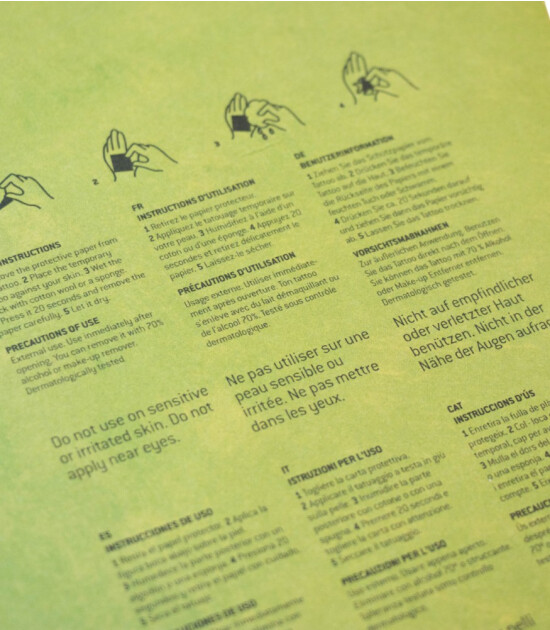 2
3
4
INSTRUCTIONS
the protective paper from
2 Place the temporary
against your skin. 3 Wet the
with cotton wool or a sponge.
Press it 20 seconds and remove the
paper carefully. 5 Let it dry.
PRECAUTIONS OF USE
External use. Use immediately after
opening. You can remove it with 70%
alcohol or make-up remover.
Dermatologically tested
Do not use on sensitive
or irritated skin. Do not
apply near eyes.
FR
INSTRUCTIONS D'UTILISATION
1 Retirez le papier protecteur.
2 Appliquez le tatouage temporaire sur
votre peau. 3 Humidifiez à l'aide d'un
coton ou d'une éponge. 4 Appuyez 20
secondes et retirez délicatement le
papier. 5 Laissez-le sécher.
PRÉCAUTIONS D'UTILISATION
Usage externe. Utiliser immédiate-
ment après ouverture. Ton tattoo
s'enlève avec du lait démaquillant ou
de l'alcool 70%. Testé sous contrôle
dermatologique.
Ne pas utiliser sur une
peau sensible ou
irritée. Ne pas mettre
dans les yeux.
DE
BENUTZERINFORMATION
1 Ziehen Sie das Schutzpapier vom
Tattoo ab. 2 Drücken Sie das temporäre
Tattoo auf die Haut. 3 Befeuchten Sie
die Rückseite des Papiers mit einem
feuchten Tuch oder Schwamm.
4 Drücken Sie ca. 20 Sekunden darauf
und ziehen Sie dann das Papier vorsichtig
ab. 5 Lassen Sie das Tattoo trocknen.
VORSICHTSMAßNAHMEN
Zur äußerlichen Anwendung. Benutzen
Sie das Tattoo direkt nach dem Öffnen.
Sie können das Tattoo mit 70% Alkohol
oder Make-up Entferner entfernen.
Dermatologisch getestet.
Nicht auf empfindlicher
oder verletzter Haut
benützen. Nicht in der
Nähe der Augen
ES
INSTRUCCIONES DE USO
1 Retira el papel protector. 2 Aplica la
figura boca abajo sobre la piel.
3 Humedece la parte posterior con un
algodón o una esponja. 4 Presiona 20
segundos y retira el papel con cuidado.
5 Deja el tatuaje
DE USO
IT
ISTRUZIONI PER L'USO
1 Togliere la carta protettiva.
2 Applicare il tatuaggio a testa in giù
sulla pelle. 3 Inumidire la parte
posteriore con cotone o con una
spugna. 4 Premere 20 secondi e
togliere la carta con attenzione.
5 Seccare il tatuaggio.
PRECAUZIONI PER L'USO
Uso esterno. Usare appena aperto.
Eliminare con alcool 70° o struccante
CAT
INSTRUCCIONS D'ÚS
1 Enretira la fulla de
protegeix. 2 Col·loca
temporal, cap per
3 Mulla el dors
o una esponja. 4
i enretira el
compte. 5